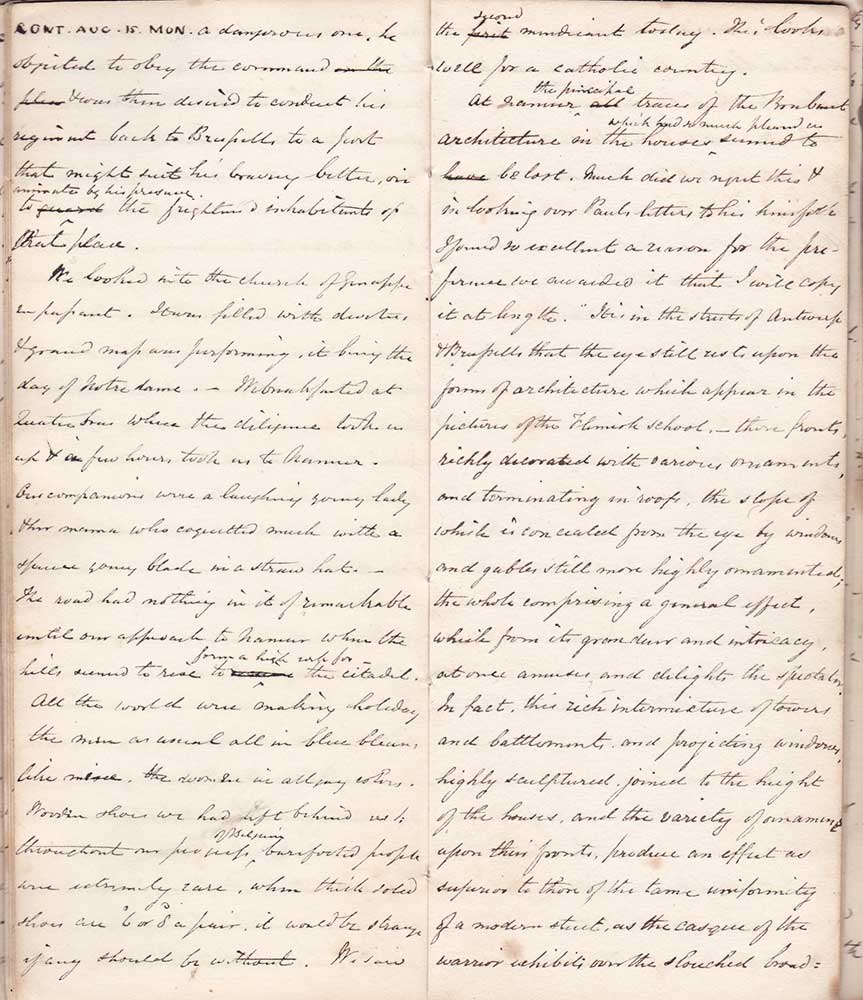 CONT. AUG. 15. MON. a dangerous one, he
objected to obey the command on the
plea & was then desired to conduct his
regiment back to Brussells to a post
that might suit his bravery better, viz
animate by his presence
to guard the frightened inhabitants of
that place.
We looked into the church of Genappe
en passant. It was filled with devotees
& grand mass was performing, it being the
day of Notre dame. — We breakfasted at
Quatre bras where the diligence took us
up & in few hours took us to Namur.
Our companions were a laughing young lady
& her mama who coquetted much with a
spruce young blade in a straw hat. —
The road had nothing in it of remarkable
until our approach to Namur when the
form a high
hills seemed to rise to the citadel.
All the world were making holiday
the men as usual all in blue blouses
like mine. the women in all gay colors.
Wooden shoes we had left behind us &
of Belgium
throughout our progress, barefooted people
were extremely rare, when thick soled
shoes are 6 or 8 a pair, it would be strange
if any should be without. We saw
second
the first mendicant today. This looks
well for a catholic country.
the principal
At Namur all traces of the Brabant
which had so much pleased us
architecture in the houses seemed to
have be lost. Much did we regret this &
in looking over Pauls letters to his kinsfolk
I found so excellent a reason for the pre-
ference we awarded it that I will copy
it at length. "It is in the streets of Antwerp
& Brussells that the eye still rests upon the
forms of architecture which appear in the
pictures of the Flemish school, — those fronts,
richly decorated with various ornaments,
and terminating in roofs, the slope of
which is concealed from the eye by windows
and gables still more highly ornamented;
the whole comprising a general effect,
which from its grandeur and intricacy,
at once amuses and delights the spectator.
In fact, this rich intermixture of towers
and battlements, and projecting windows,
highly sculptured, joined to the height
of the houses, and the variety of ornament
upon their fronts, produce an effect as
superior to those of the tame uniformity
of a modern street, as the casque of the
warrior exhibits over the slouched broad=